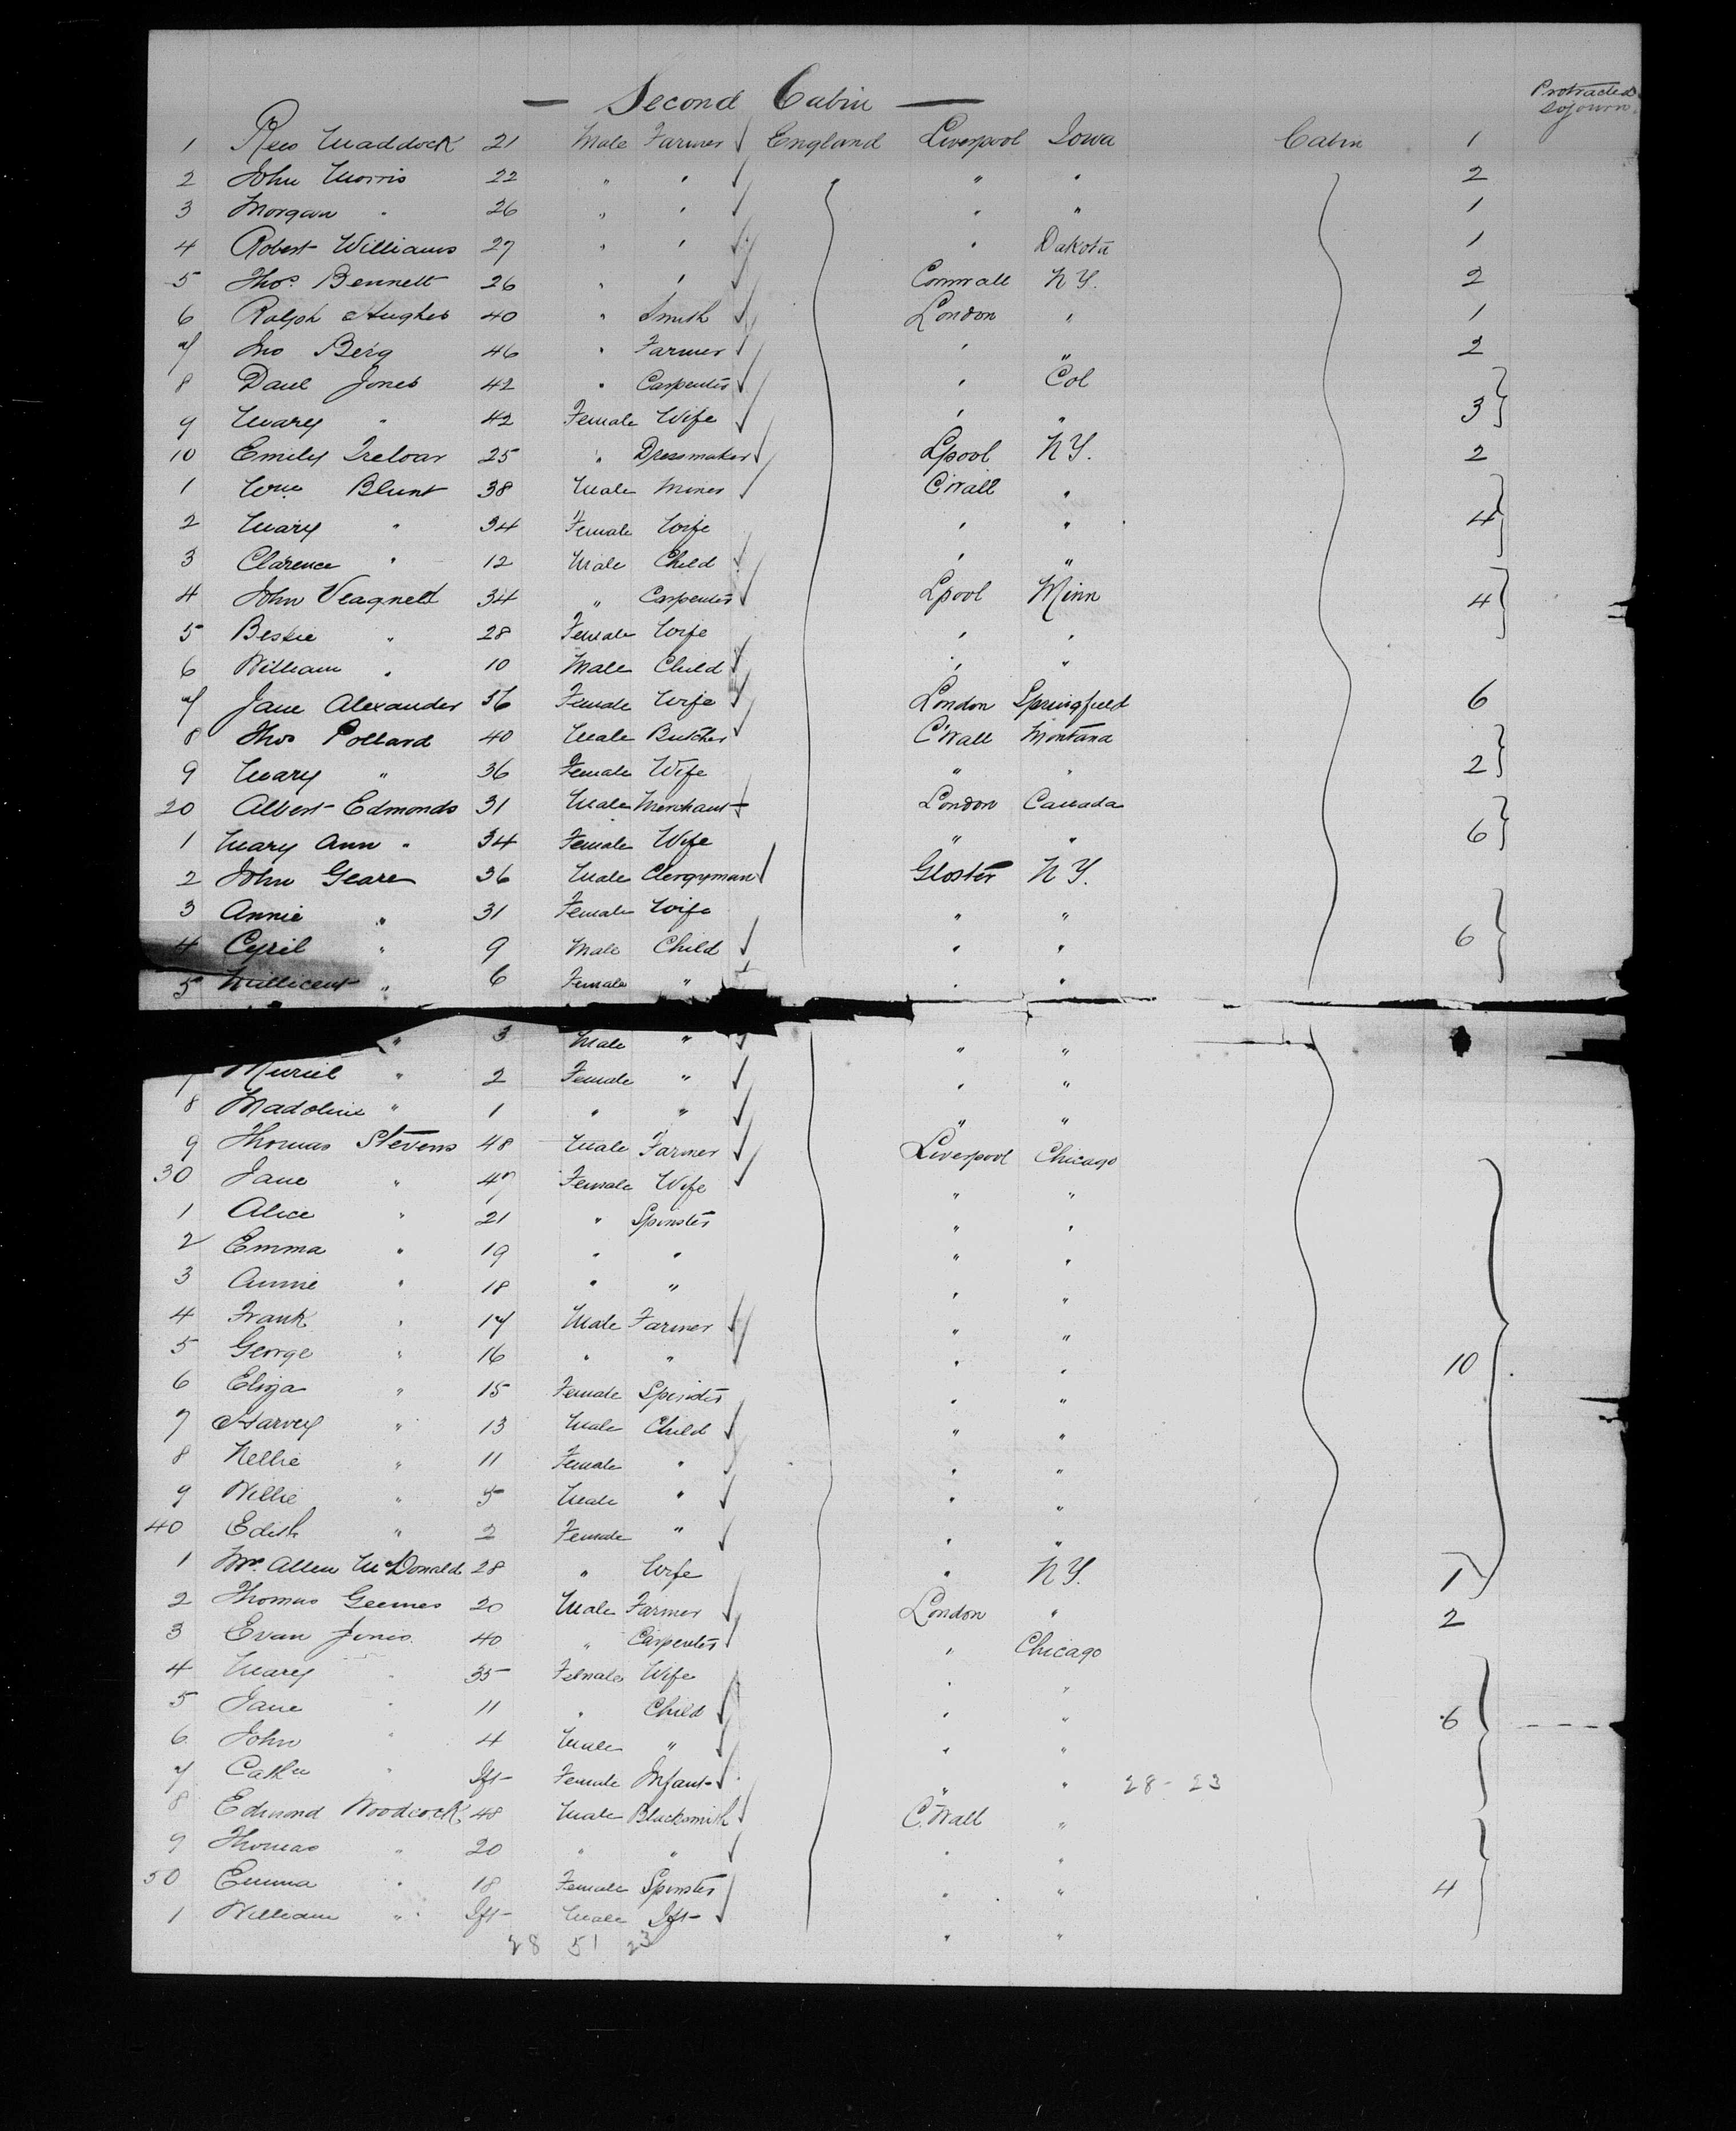 — Second Cabin —
Protracted
Sojourn
1 Rees Maddock 21 Male Farmer England Liverpool Iowa Cabin 1
2 John Morris 22 " " " " 2
3 Morgan " 26 " " " " 1
4 Robert Williams 27 " " " Dakota 1
5 Thos Bennett 26 " " Cornwall N Y. 2
6 Ralph Hughes 40 " Smith London " 1
7 Jno Berg 46 " Farmer " " 2
8 Danl Jones 42 " Carpenter " Col
9 Mary " 42 Female Wife " " 3
10 Emily Treloar 25 " Dressmaker Lpool N Y. 2
1 Wm Blunt 38 Male Miner C'Wall "
2 Mary " 34 Female Wife " " 4
3 Clarence " 12 Male Child " "
4 John 34 " Carpenter Lpool Minn 4
5 Bessie " 28 Female Wife " "
6 William " 10 Male Child " "
7 Jane Alexander 36 Female Wife London Springfield 6
8 Thos Pollard 40 Male Butcher C'Wall Montana
9 Mary " 36 Female Wife " " 2
20 Albert Edmonds 31 Male Merchant London Canada
1 Mary Ann " 34 Female Wife " " 6
2 John Geare 36 Male Clergyman Gloster N Y.
3 Annie " 31 Female Wife " "
4 Cyril " 9 Male Child " " 6
5 Millicent " 6 Female " " "
" 3 Male " " "
7 Muriel " 2 Female " " "
8 Madoline " 1 " " " "
9 Thomas Stevens 48 Male Farmer Liverpool Chicago
30 Jane " 47 Female Wife " "
1 Alice " 21 " Spinster " "
2 Emma " 19 " " " "
3 Annie " 18 " " " "
4 Frank " 17 Male Farmer " "
5 George " 16 " " " " 10
6 Eliza " 15 Female Spinster " "
7 Harvey " 13 Male Child " "
8 Nellie " 11 Female " " "
9 Willie " 5 Male " " "
40 Edith " 2 Female " " "
1 Mrs Allen McDonald 28 " Wife " N Y. 1
2 Thomas 20 Male Farmer London " 2
3 Evan Jones 40 " Carpenter " Chicago
4 Mary " 35 Female Wife " "
5 Jane " 11 " Child " " 6
6 John " 4 Male " " "
7 Cath " Ift Female Infant " " 28 - 23
8 Edmond Woodcock 48 Male Blacksmith C.Wall "
9 Thomas " 20 " " " "
50 Emma " 18 Female Spinster " " 4
1 William " Ift Male Ift " "
28 51 23